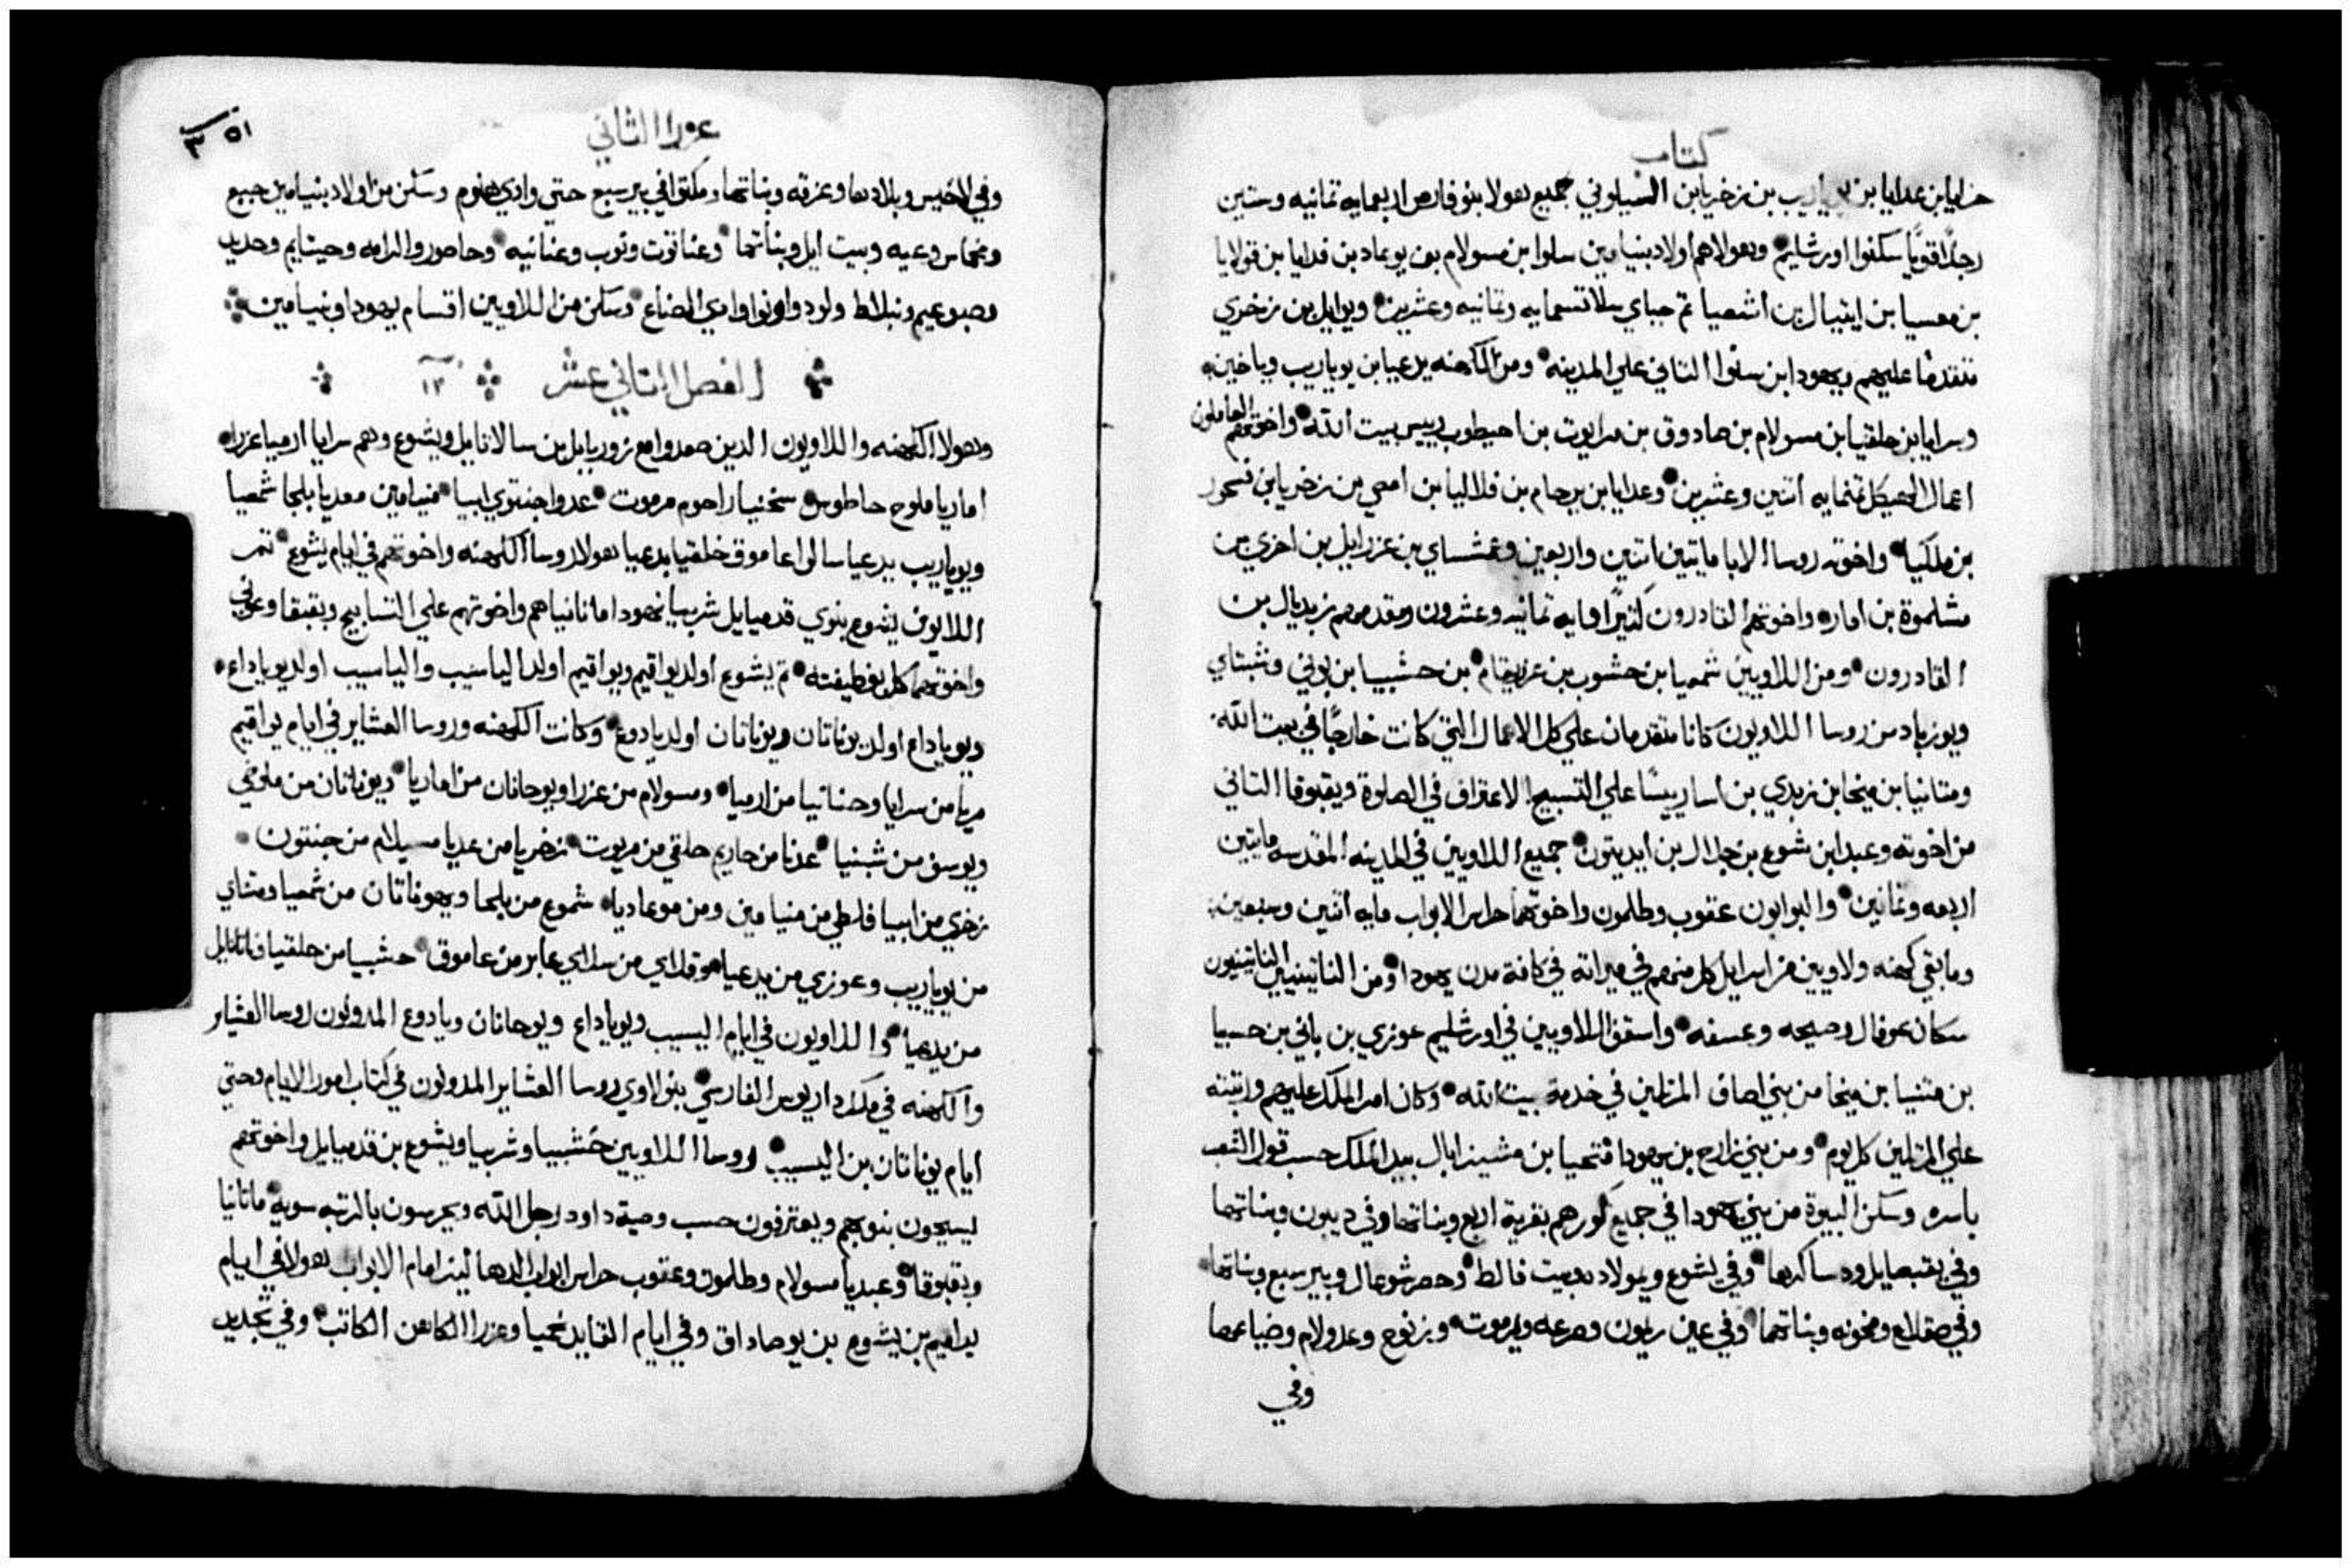 كتاب
حزايا بن عدايا بن يوياريب بن زخريا بن السيلوني جميع هولا بنو فارص اربعمايه ثمانيه وستين
رجلاً قويًا سكنوا اورشليم وهولاهم اولاد بنيامين سلوا بن مسولام بن يوعاد بن فدايا بن قولايا
بن معسيا بن ايتيال بن اشعيا ثم جباي سلا تسعمايه وثمانيه وعشرين ويوايل بن زخري
متقدمًا عليهم ويهودا بن سنوا الثاني علي المدينه ومن الكهنه يدعيا بن يوياريب وياخين
وسرايا بن حلقيا بن مسولام بن صادوق بن مرايوت بن احيطوب رييس بيت الله واخوتهم العاملون
اعمال الهيكل ثمنمايه اثنين وعشرين وعدايا بن يرحام بن فلاليا بن امصي بن زخريا بن فسحور
بن ملكيا واخوته روسا الابا مايتين اتنين واربعين وعمشساي بن عزرايل بن احزي بن
مشلموة بن اماره واخوتهم القادرون كثيرًا مايه ثمانيه وعشرون ومقدمهم زبديال بن
القادرون ومن اللاويين شمعيا بن حشوب بن عزريقام بن حشبيا بن بوني وشبتاي
ويوزباد من روسا اللاويون كانا متقدمان علي كل الاعمال التي كانت خارجًا في بيت الله
ومتانيا بن ميخا بن زبدي بن اسا رييسًا علي التسبيح الاعتراف في الصلوة ويقبوقا الثاني
من اخوته وعبدا بن شوع بن جلال بن ايديتون جميع اللاويين في المدينه المقدسه مايتين
اربعه وثمانين والبوابون عقوب وطلمون واخوتهما حراس الابواب مايه اثنين وسبعين
وما بقي كهنه ولاويين من اسرايل كل منهم في ميراثه في كافة مدن يهودا ومن الناتينيين الناتينيون
سكان عوفال وصيحه وعسفه واسقف اللاويين في اورشليم عوزي بن باني بن حسبيا
بن متنيا بن ميخا من بني اصاف المرتلين في خدمة بيت الله وكان امر الملك عليهم ورتبته
علي المرتلين كل يوم ومن بني زارح بن يهودا فتحيا بن مشيزابال بيد الملك حسب قول الشعب
باسره وسكن البيرة من بني يهودا في جميع كورهم بقرية اربع وبناتها وفي ديبون وبناتها
وفي يقبصايل ودساكرها وفي يشوع ويمولاد وبيت فالط وحصر شوعال وبير سبع وبناتها
وفي صقلاع ومخونه وبناتهما وفي عين ريمون وصرعه ويرموت وزنوع وعدولام وضياعها
وفي
٥١
عزرا الثاني
وفي لاخيس وبلادها وعزقه وبناتها ومكثوا في بير سبع حتي وادي هنوم وسكن من اولاد بنيامين جبع
ومخماس وعيه وبيت ايل وبناتها وعناتوت ونوب وعنانيه وحاصور والرامه وجيتايم وحديد
وصبوعيم ونبلاط ولود واونوا وادي الصناع وسكن من اللاويين اقسام يهودا وبنيامين
الفصل الثاني عشر ١٢
وهولا الكهنه واللاويون الذين صعدوا مع زوربابل بن سالاتايل ويشوع وهم سرايا ارميا عزرا
اماريا ملوح حاطوس سخنيا راحوم مرموت عدوا جنتوي ابيا منيامين معديا بلجا شمعيا
ويوياريب يدعيا سالوا عاموق خلقيا يدعيا هولا روسا الكهنه واخوتهم في ايام يشوع ثم
اللاويون يشوع بنوي قدميايل شربيا يهودا ماتانيا هم واخوتهم علي التسابيح وبقبقا وعوني
واخوتهما كل بوظيفته ثم يشوع اولد يواقيم ويواقيم اولد الياسيب والياسيب اولد يوياداع
ويوياداع اولد يوناتان ويوناتان اولد يادوع وكانت الكهنه وروسا العشاير في ايام يواقيم
مريا من سرايا وحنانيا من ارميا ومسولام من عزرا ويوحانان من اماريا ويوناتان من ملوخي
ويوسف من شبنيا عدنا من حاريم حلقي من مريوت زخريا من عديا مسيلام من جنتون
زخري من ابيا فلطي من منيامين ومن موعاديا شموع من بلجا ويهوناتان من شمعيا ومتناي
من يوياريب وعوزي من يدعيا وقلاي من سلاي عابر من عاموق حشبيا من حلقيا ناتانايل
من يدعيا واللاويون في ايام اليسيب ويوياداع ويوحانان ويادوع المدونون روسا العشاير
والكهنه في ملك داريوس الفارسي بنو لاوي روسا العشاير المدونون في كتاب امور الايام وحتي
ايام يوناتان بن اليسيب وروسا اللاويين حشبيا وشربيا ويشوع بن قدميايل واخوتهم
ليسبحون بنوبهم ويعترفون حسب وصية داود رجل الله ويحرسون بالرتبه سوية ماتانيا
وبقبوقا وعبديا مسولام وطلمون وعقوب حراس ابواب الدهاليز امام الابواب هولا في ايام
يواقيم بن يشوع بن يوصاداق وفي ايام القايد نحميا وعزرا الكاهن الكاتب وفي تجديد